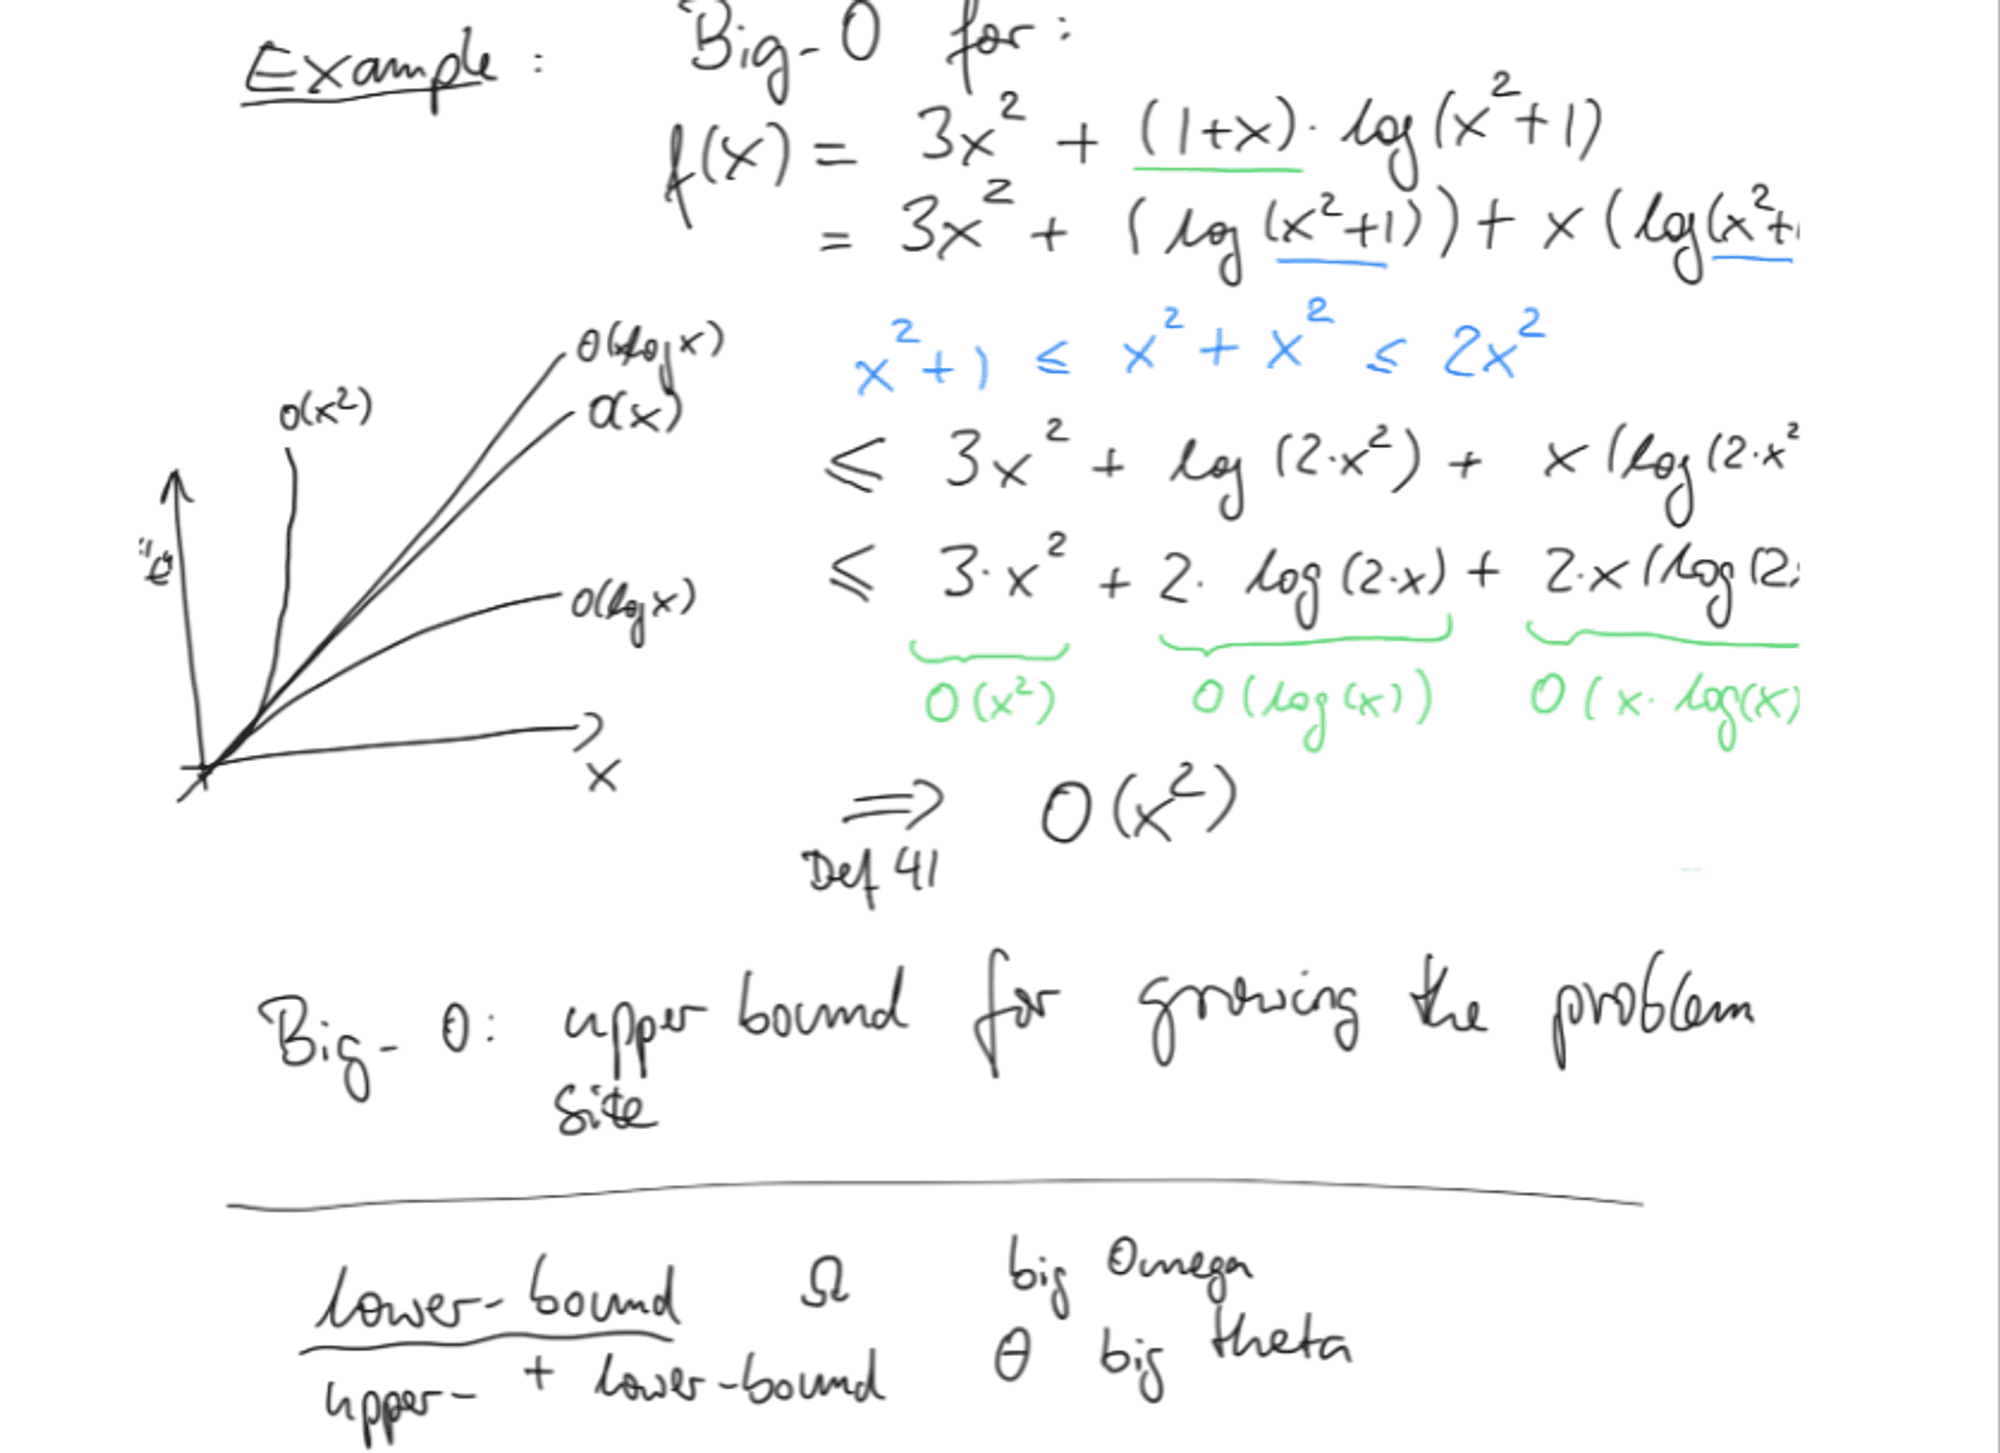 Example: Big-O for:
f(x) = 3x² + (1+x) · log(x²+1)
= 3x² + (log(x²+1)) + x(log(x²+
x²+1 ≤ x² + x² ≤ 2x²
≤ 3x² + log(2·x²) + x(log(2·x²
≤ 3·x² + 2· log(2·x) + 2·x(log(2
O(x²) O(log(x)) O(x·log(x)
⇒ O(x²)
Def 41
O(x²)
O(x)
O(log x)
"t"
x
Big-O: upper bound for growing the problem
site
lower-bound Ω big Omega
upper- + lower-bound θ big theta